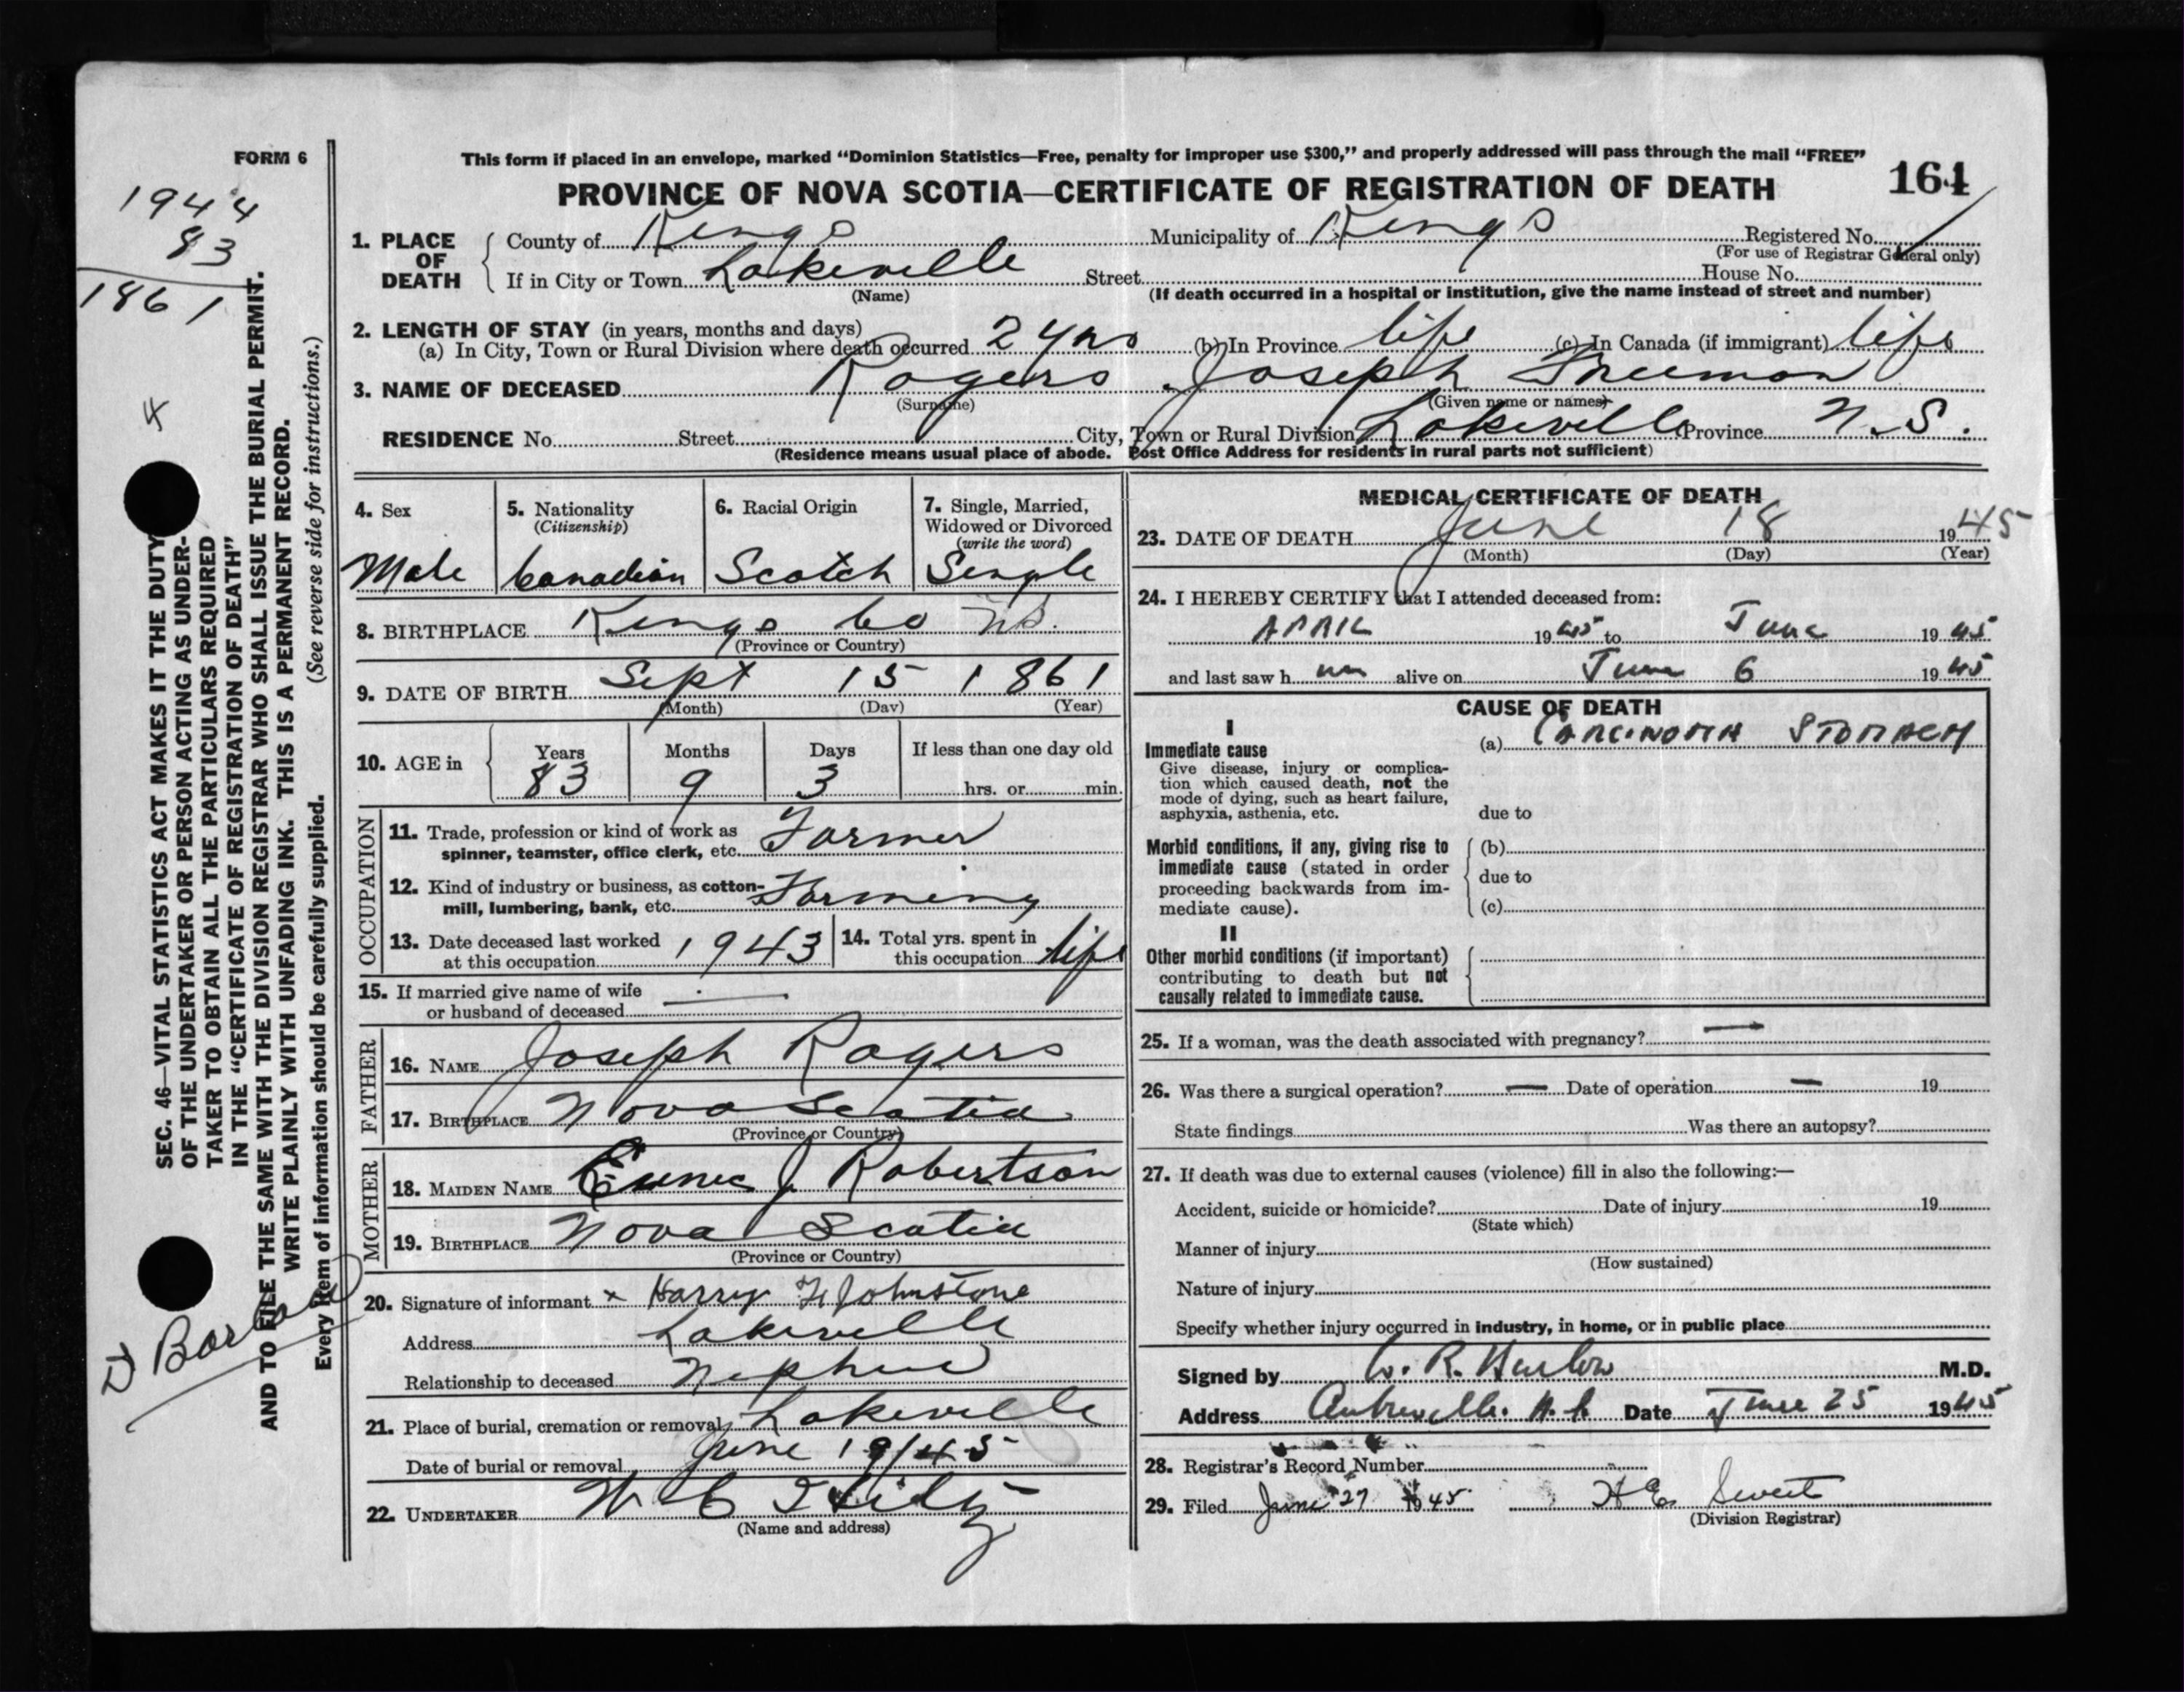 FORM 6
This form if placed in an envelope, marked "Dominion Statistics—Free, penalty for improper use $300," and properly addressed will pass through the mail "FREE"
PROVINCE OF NOVA SCOTIA—CERTIFICATE OF REGISTRATION OF DEATH
164
1944
83
1861
4
SEC. 46—VITAL STATISTICS ACT MAKES IT THE DUTY
OF THE UNDERTAKER OR PERSON ACTING AS UNDER-
TAKER TO OBTAIN ALL THE PARTICULARS REQUIRED
IN THE "CERTIFICATE OF REGISTRATION OF DEATH"
AND TO FILE THE SAME WITH THE DIVISION REGISTRAR WHO SHALL ISSUE THE BURIAL PERMIT.
WRITE PLAINLY WITH UNFADING INK. THIS IS A PERMANENT RECORD.
Every item of information should be carefully supplied. (See reverse side for instructions.)
1. PLACE OF DEATH
County of Kings Municipality of Kings Registered No.
(For use of Registrar General only)
If in City or Town Lakeville Street House No.
(Name) (If death occurred in a hospital or institution, give the name instead of street and number)
2. LENGTH OF STAY (in years, months and days)
(a) In City, Town or Rural Division where death occurred 2 yrs (b) In Province life (c) In Canada (if immigrant) life
3. NAME OF DECEASED Rogers Joseph Freeman
(Surname) (Given name or names)
RESIDENCE No. Street City, Town or Rural Division Lakeville Province N.S.
(Residence means usual place of abode. Post Office Address for residents in rural parts not sufficient)
4. Sex
Male
5. Nationality
(Citizenship)
Canadian
6. Racial Origin
Scotch
7. Single, Married,
Widowed or Divorced
(write the word)
Single
8. BIRTHPLACE Kings Co NS.
(Province or Country)
9. DATE OF BIRTH Sept 15 1861
(Month) (Day) (Year)
10. AGE in
Years Months Days If less than one day old
83 9 3 hrs. or min.
OCCUPATION
11. Trade, profession or kind of work as
spinner, teamster, office clerk, etc. Farmer
12. Kind of industry or business, as cotton-
mill, lumbering, bank, etc. Farming
13. Date deceased last worked
at this occupation 1943
14. Total yrs. spent in
this occupation life
15. If married give name of wife
or husband of deceased
FATHER
16. NAME Joseph Rogers
17. BIRTHPLACE Nova Scotia
(Province or Country)
MOTHER
18. MAIDEN NAME Eunice J Robertson
19. BIRTHPLACE Nova Scotia
(Province or Country)
20. Signature of informant x Harry F Johnstone
Address Lakeville
Relationship to deceased Nephew
21. Place of burial, cremation or removal Lakeville
Date of burial or removal June 19/45
22. UNDERTAKER W C
(Name and address)
MEDICAL CERTIFICATE OF DEATH
23. DATE OF DEATH June 18 1945
(Month) (Day) (Year)
24. I HEREBY CERTIFY that I attended deceased from:
APRIL 1945 to June 1945
and last saw h im alive on June 6 1945
CAUSE OF DEATH
I
Immediate cause
Give disease, injury or complica-
tion which caused death, not the
mode of dying, such as heart failure,
asphyxia, asthenia, etc.
(a) CARCINOMA STOMACH
due to
Morbid conditions, if any, giving rise to
immediate cause (stated in order
proceeding backwards from im-
mediate cause).
(b)
due to
(c)
II
Other morbid conditions (if important)
contributing to death but not
causally related to immediate cause.
25. If a woman, was the death associated with pregnancy? —
26. Was there a surgical operation? — Date of operation — 19
State findings Was there an autopsy?
27. If death was due to external causes (violence) fill in also the following:—
Accident, suicide or homicide? Date of injury 19
(State which)
Manner of injury
(How sustained)
Nature of injury
Specify whether injury occurred in industry, in home, or in public place
Signed by M.D.
Address Date June 25 1945
28. Registrar's Record Number
29. Filed June 27 1945 H E Sweet
(Division Registrar)